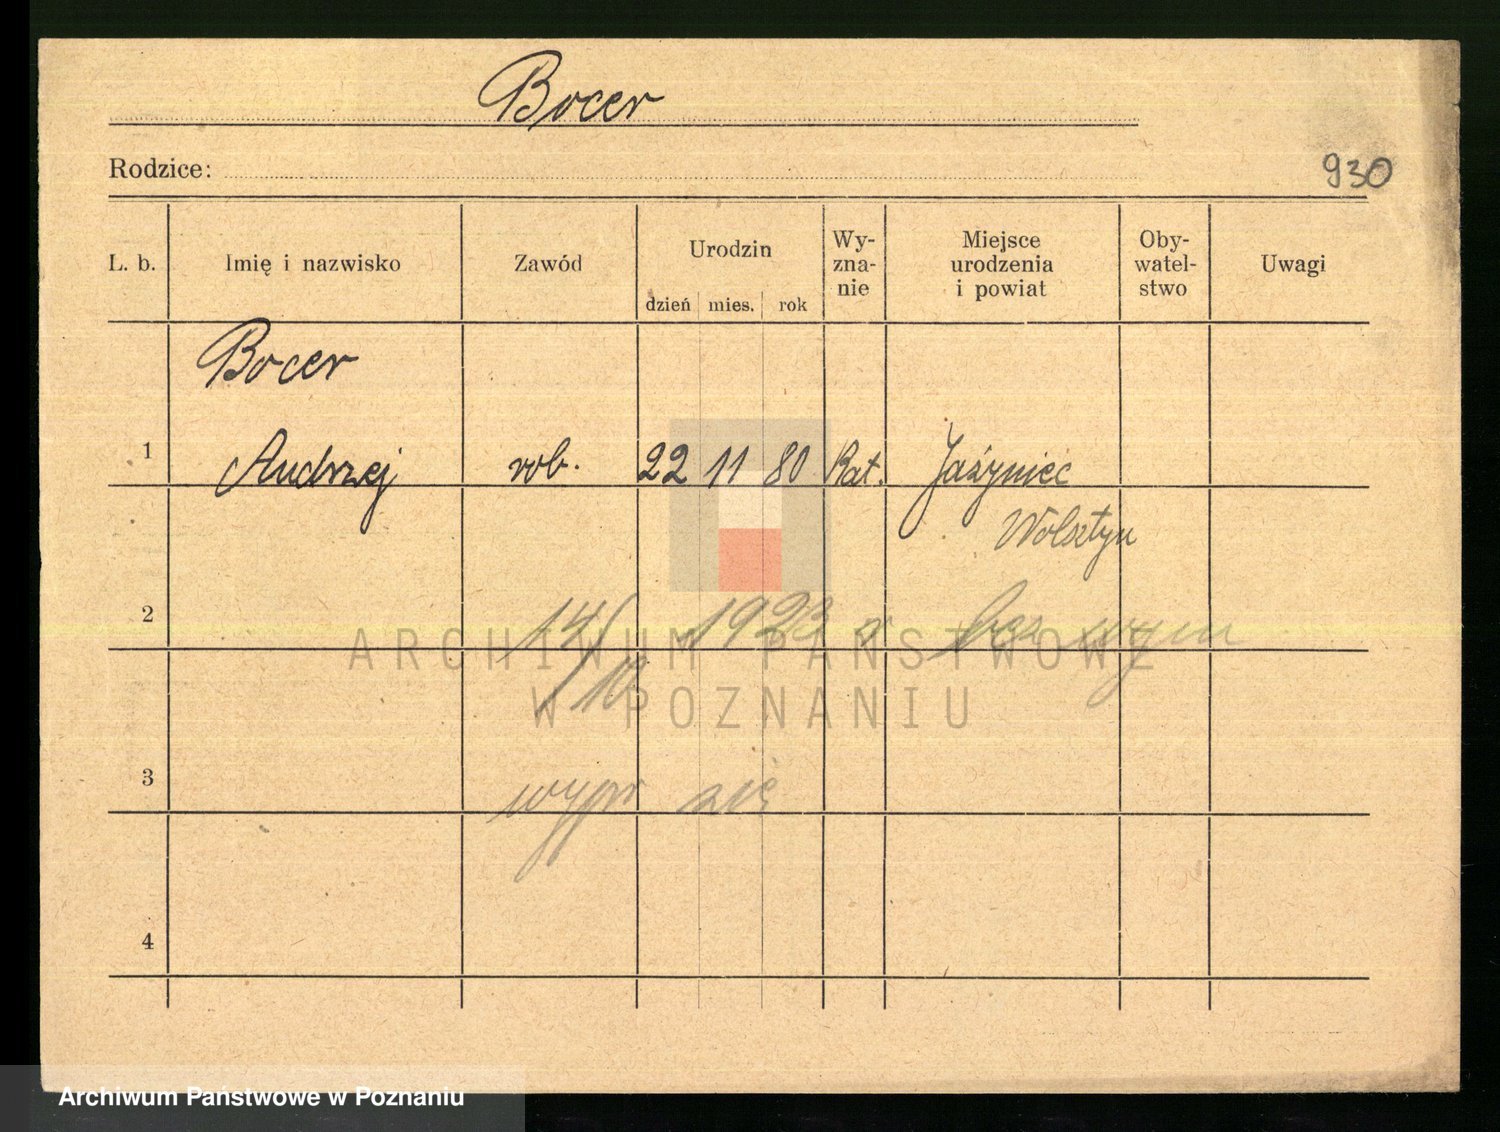 Bocer
Rodzice:
930
L. b. Imię i nazwisko Zawód Urodzin dzień mies. rok Wy-zna-nie Miejsce urodzenia i powiat Oby-watel-stwo Uwagi
Bocer
1 Andrzej rob. 22 11 80 Kat. Jażyniec
Wolsztyn
2 14/10 1923 r bez wym
ARCHIWUM PAŃSTWOWE
W POZNANIU
3 wypr się
4
Archiwum Państwowe w Poznaniu